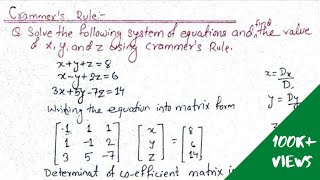 Crammer's Rule:-
Q. Solve the following system of equations and find the value
of x, y, and z using Crammer's Rule.
x+y+z=8
x-y+2z=6
3x+5y-7z=14
x = Dx/D
y = Dy/D
Writing the equation into matrix form
[1 1 1] [x] [8]
[1 -1 2] [y] = [6]
[3 5 -7] [z] [14]
Determinat of co-efficient matrix
100K+
VIEWS